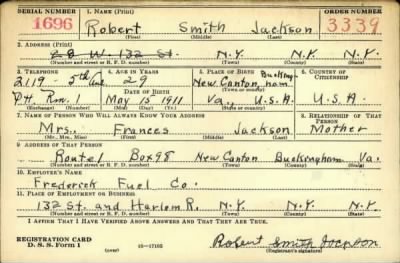 SERIAL NUMBER 1. NAME (Print) ORDER NUMBER
1696 Robert Smith Jackson 3339
(First) (Middle) (Last)
2. ADDRESS (Print)
28 W. 132 St. N.Y. N.Y. N.Y.
(Number and street or R. F. D. number) (Town) (County) (State)
3. TELEPHONE 4. AGE IN YEARS 5. PLACE OF BIRTH 6. COUNTRY OF CITIZENSHIP
2119 5th Ave. 29 New Canton, Buckingham
DATE OF BIRTH (Town or county)
May 15 1911 Va., U.S.A. U.S.A.
(Exchange) (Number) (Mo.) (Day) (Yr.) (State or country)
7. NAME OF PERSON WHO WILL ALWAYS KNOW YOUR ADDRESS 8. RELATIONSHIP OF THAT PERSON
Mrs. Frances Jackson Mother
(Mr., Mrs., Miss) (First) (Middle) (Last)
9. ADDRESS OF THAT PERSON
Route 1 Box 98 New Canton Buckingham Va.
(Number and street or R. F. D. number) (Town) (County) (State)
10. EMPLOYER'S NAME
Frederick Fuel Co.
11. PLACE OF EMPLOYMENT OR BUSINESS
132 St. and Harlem R. N.Y. N.Y.
(Number and street or R. F. D. number) (Town) (County) (State)
I AFFIRM THAT I HAVE VERIFIED ABOVE ANSWERS AND THAT THEY ARE TRUE.
REGISTRATION CARD
D. S. S. Form 1 16—17105 Robert Smith Jackson
(Registrant's signature)